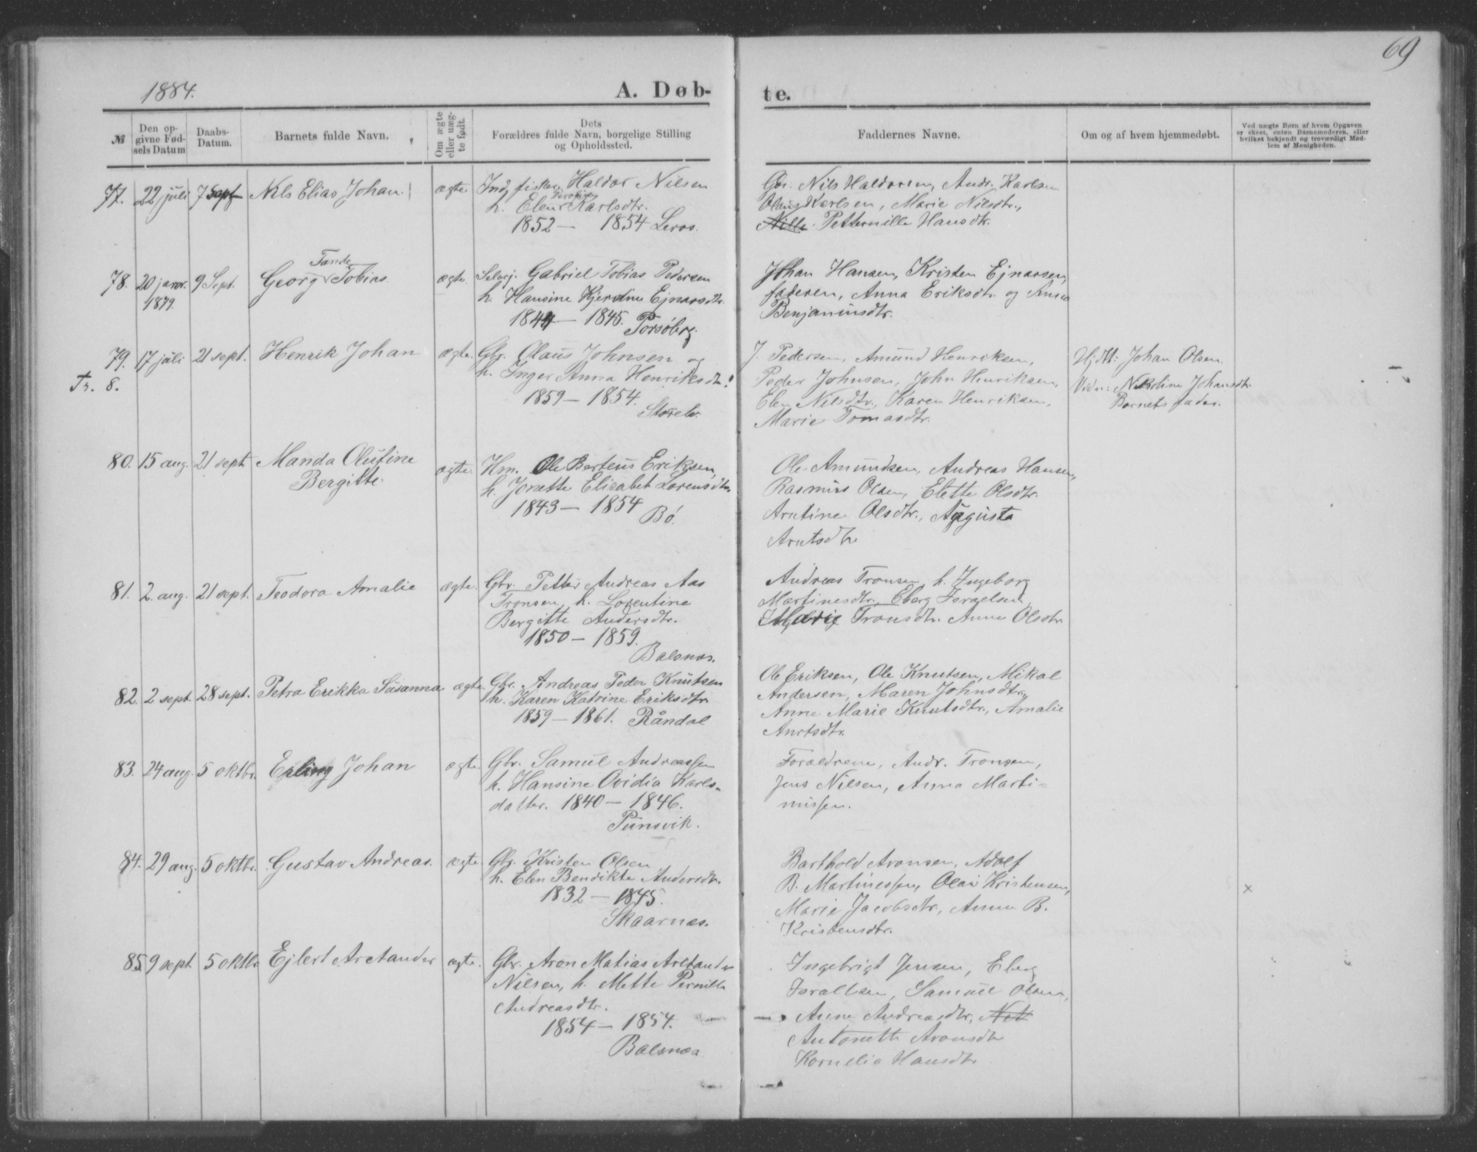 69
1884.
A. Døb-
te.
№
Den op-
givne Fød-
sels Datum
Daabs-
Datum.
Barnets fulde Navn.
Om ægte
eller uæg-
te født.
Dets
Forældres fulde Navn, borgelige Stilling
og Opholdssted.
Faddernes Navne.
Om og af hvem hjemmedøbt.
Ved uægte Børn af hvem Opgaven
er skeet, enten Barnemoderen, eller
hvilket bekjendt og troværdigt Med-
lem af Menigheden.
77. 22 juli 7 sept Nils Elias Johan ægte
Haldor Nilsen
h. Elen Karlsdtr.
1852 — 1854 Leros.
Gbr. Nils Haldorsen, Andr. Karlsen
Olaus Karlsen, Marie Nilsdtr.,
Nille Petternille Hansdtr.
78. 20 janr. 9 Sept. Georg Tobias ægte
1879
Tande
Selvej. Gabriel Tobias Pedersen
h. Hansine Kjerstine Ejnarsdtr.
1844 — 1845.
Johan Hansen, Kristen Ejnarsen,
faderen, Anna Eriksdtr. og Anne
Benjaminsdtr.
79. 17 juli 21 sept. Henrik Johan ægte
Tr. 8.
Gbr. Olaus Johnsen og
h. Inger Anna Henriksdtr.
1859 — 1854.
J. Pedersen, Amund Henriksen,
Peder Johnsen, John Henriksen,
Elen Nilsdtr., Karen Henriksen,
Marie Tomasdtr.
Hjdbt. Johan Olsen
Vidn: Johansdtr
Barnets fader.
80. 15 aug. 21 sept Manda Olufine
Bergitte. ægte
Hm. Ole Berteus Eriksen,
h. Jonette Elisabet Lorensdtr.
1843 — 1854
Bø.
Ole Amundsen, Andreas Hansen,
Rasmus Olsen, Elette Olsdtr.
Arntine Olsdtr., Augusta
Arntsdtr
81. 2 aug. 21 sept. Teodora Amalie ægte
Gbr. Petter Andreas Aas
Tronsen, h. Lorentine
Bergitte Andersdtr.
1850 — 1859.
Balsnes.
Andreas Tronsen, h. Ingeborg
Martinesdtr, Eberg Israelsen
Marie Tronsdtr. Anne Olsdtr
82. 2 sept. 28 sept. Petra Erikka Susanna ægte
Gbr. Andreas Peder Knutsen
h. Karen Katrine Eriksdtr
1859 — 1861. Råndal
Ole Eriksen, Ole Knutsen, Mikal
Andersen, Maren Johnsdtr,
Anne Marie Knutsdtr., Amalie
Arntsdtr.
83. 24 aug. 5 oktbr. Erling Johan ægte
Gbr. Samuel Andreassen
h. Hansine Ovidia Karls-
datter. 1840 — 1846.
Punsvik.
Forældrene, Andr. Tronsen,
Jens Nilsen, Anna Marti-
nussen.
84. 29 aug. 5 oktbr. Gustav Andreas. ægte
Gbr. Kristen Olsen
h. Elen Bendikte Andersdtr.
1832 — 1845.
Skaarnes.
Barthold Aronsen, Adolf
B. Martinessen, Olai Kristensen,
Marie Jacobsdtr, Anna B.
Kristensdtr.
85. 9 sept 5 oktbr Ejlert Arctander ægte.
Gbr. Aron Matias Arctander
Nilsen, h. Mette Pernille
Andreasdtr.
1854 — 1854.
Balsnes
Ingebrigt Jensen, Eberg
Israelsen, Samuel Olsen,
Anne Andreasdtr,
Antonette Aronsdtr
Kornelia Hansdtr